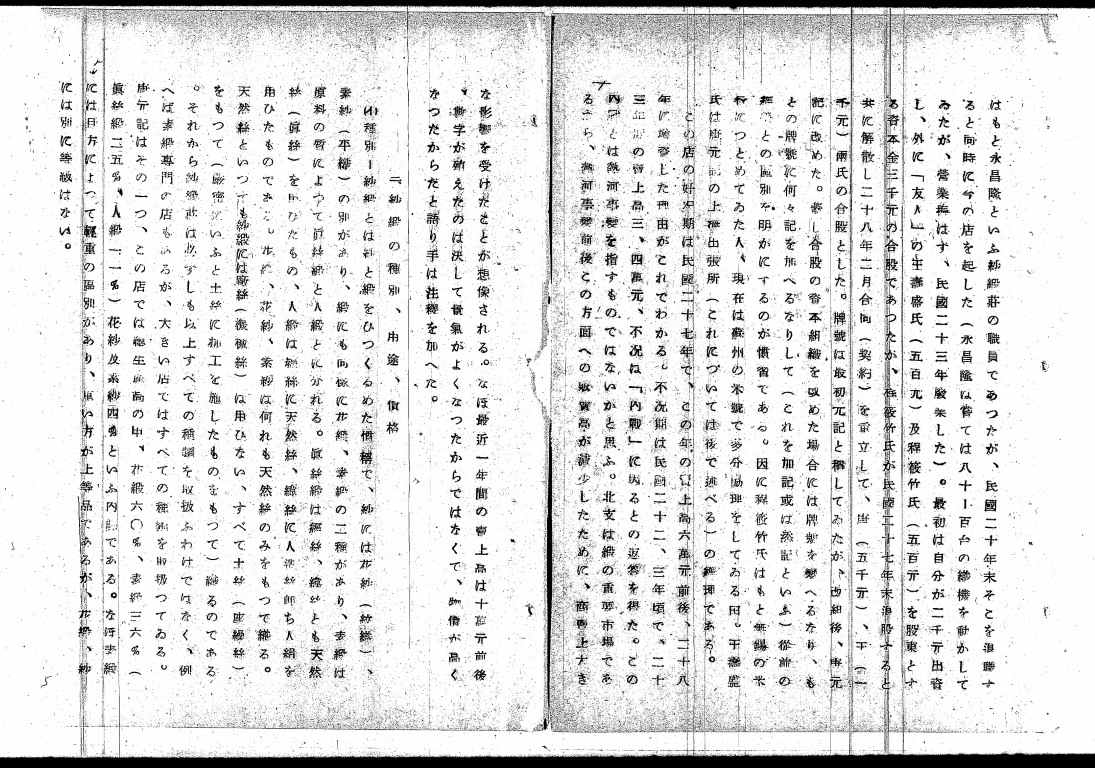 はもと永昌隆といふ紗緞莊の職員であつたが、民國二十年末そこを退職す
ると同時に今の店を起した(永昌隆は嘗ては八十—百台の織機を動かして
ゐたが、營業振はず、民國二十三年廢業した)。最初は自分が二千元出資
し、外に「友人」の王壽盛氏(五百元)及程筱竹氏(五百元)を股東とす
る資本金三千元の合股であつたが、程筱竹氏が民國二十七年末退股すると
共に解散し二十八年二月合同(契約)を重立して、唐(五千元)、王(一
千元)兩氏の合股とした。牌號は最初元記と稱してゐたが、改組後、唐元
記に改めた。蓋し合股の資本組織を改めた場合には牌號を變へるなり、も
との牌號に何々記を加へるなりして(これを加記或は添記といふ)從前の
組織との區別を明かにするのが慣習である。因に程筱竹氏はもと無錫の米
行につとめてゐた人、現在は蘇州の米號で多分協理をしてゐる由。王壽盛
氏は唐元記の上海出張所(これについては後で述べる)の經理である。
この店の好况期は民國二十七年で、この年の賣上高六萬元前後、二十八
年に增資した理由がこれでわかる。不况期は民國二十二、三年頃で、二十
三年の賣上高三、四萬元、不况は「內戰」に因るとの返答を得た。この
內戰とは熱河事變を指すものではないかと思ふ。北支は緞の重要市場であ
るから、熱河事變前後この方面への販賣高が減少したために、商賣上大き
な影響を受けたことが想像される。なほ最近一年間の賣上高は十萬元前後
、數字が殖えたのは決して景氣がよくなつたからではなくて、物價が高く
なつたからだと語り手は注釋を加へた。
二 紗緞の種別、用途、價格
(1)種別—紗緞とは紗と緞をひつくるめた慣稱で、紗には花紗(紋織)、
素紗(平織)の別があり、緞にも同樣に花緞、素緞の二種があり、素緞は
原料の質によつて眞絲緞と人緞とに分れる。眞絲緞は經絲、緯絲とも天然
絲(眞絲)を用ひたもの、人緞は經絲に天然絲、緯絲に人造絲卽ち人絹を
用ひたものである。花緞、花紗、素紗は何れも天然絲のみをもつて織る。
天然絲といつても紗緞には廠絲(機械絲)は用ひない、すべて土絲(座繰絲)
をもつて(嚴密にいふと土絲に加工を施したものをもつて)織るのである
。それから紗緞莊は必ずしも以上すべての種類を取扱ふわけではなく、例
へば素緞專門の店もあるが、大きい店ではすべての種類を取扱つてゐる。
唐元記はその一つ、この店では總生產高の中、花緞六〇%、素緞三六%(
眞絲緞二五%、人緞一一%)花紗及素紗四%といふ內譯である。なほ素緞
には目方によつて輕重の區別があり、重い方が上等品であるが、花緞、紗
には別に等級はない。